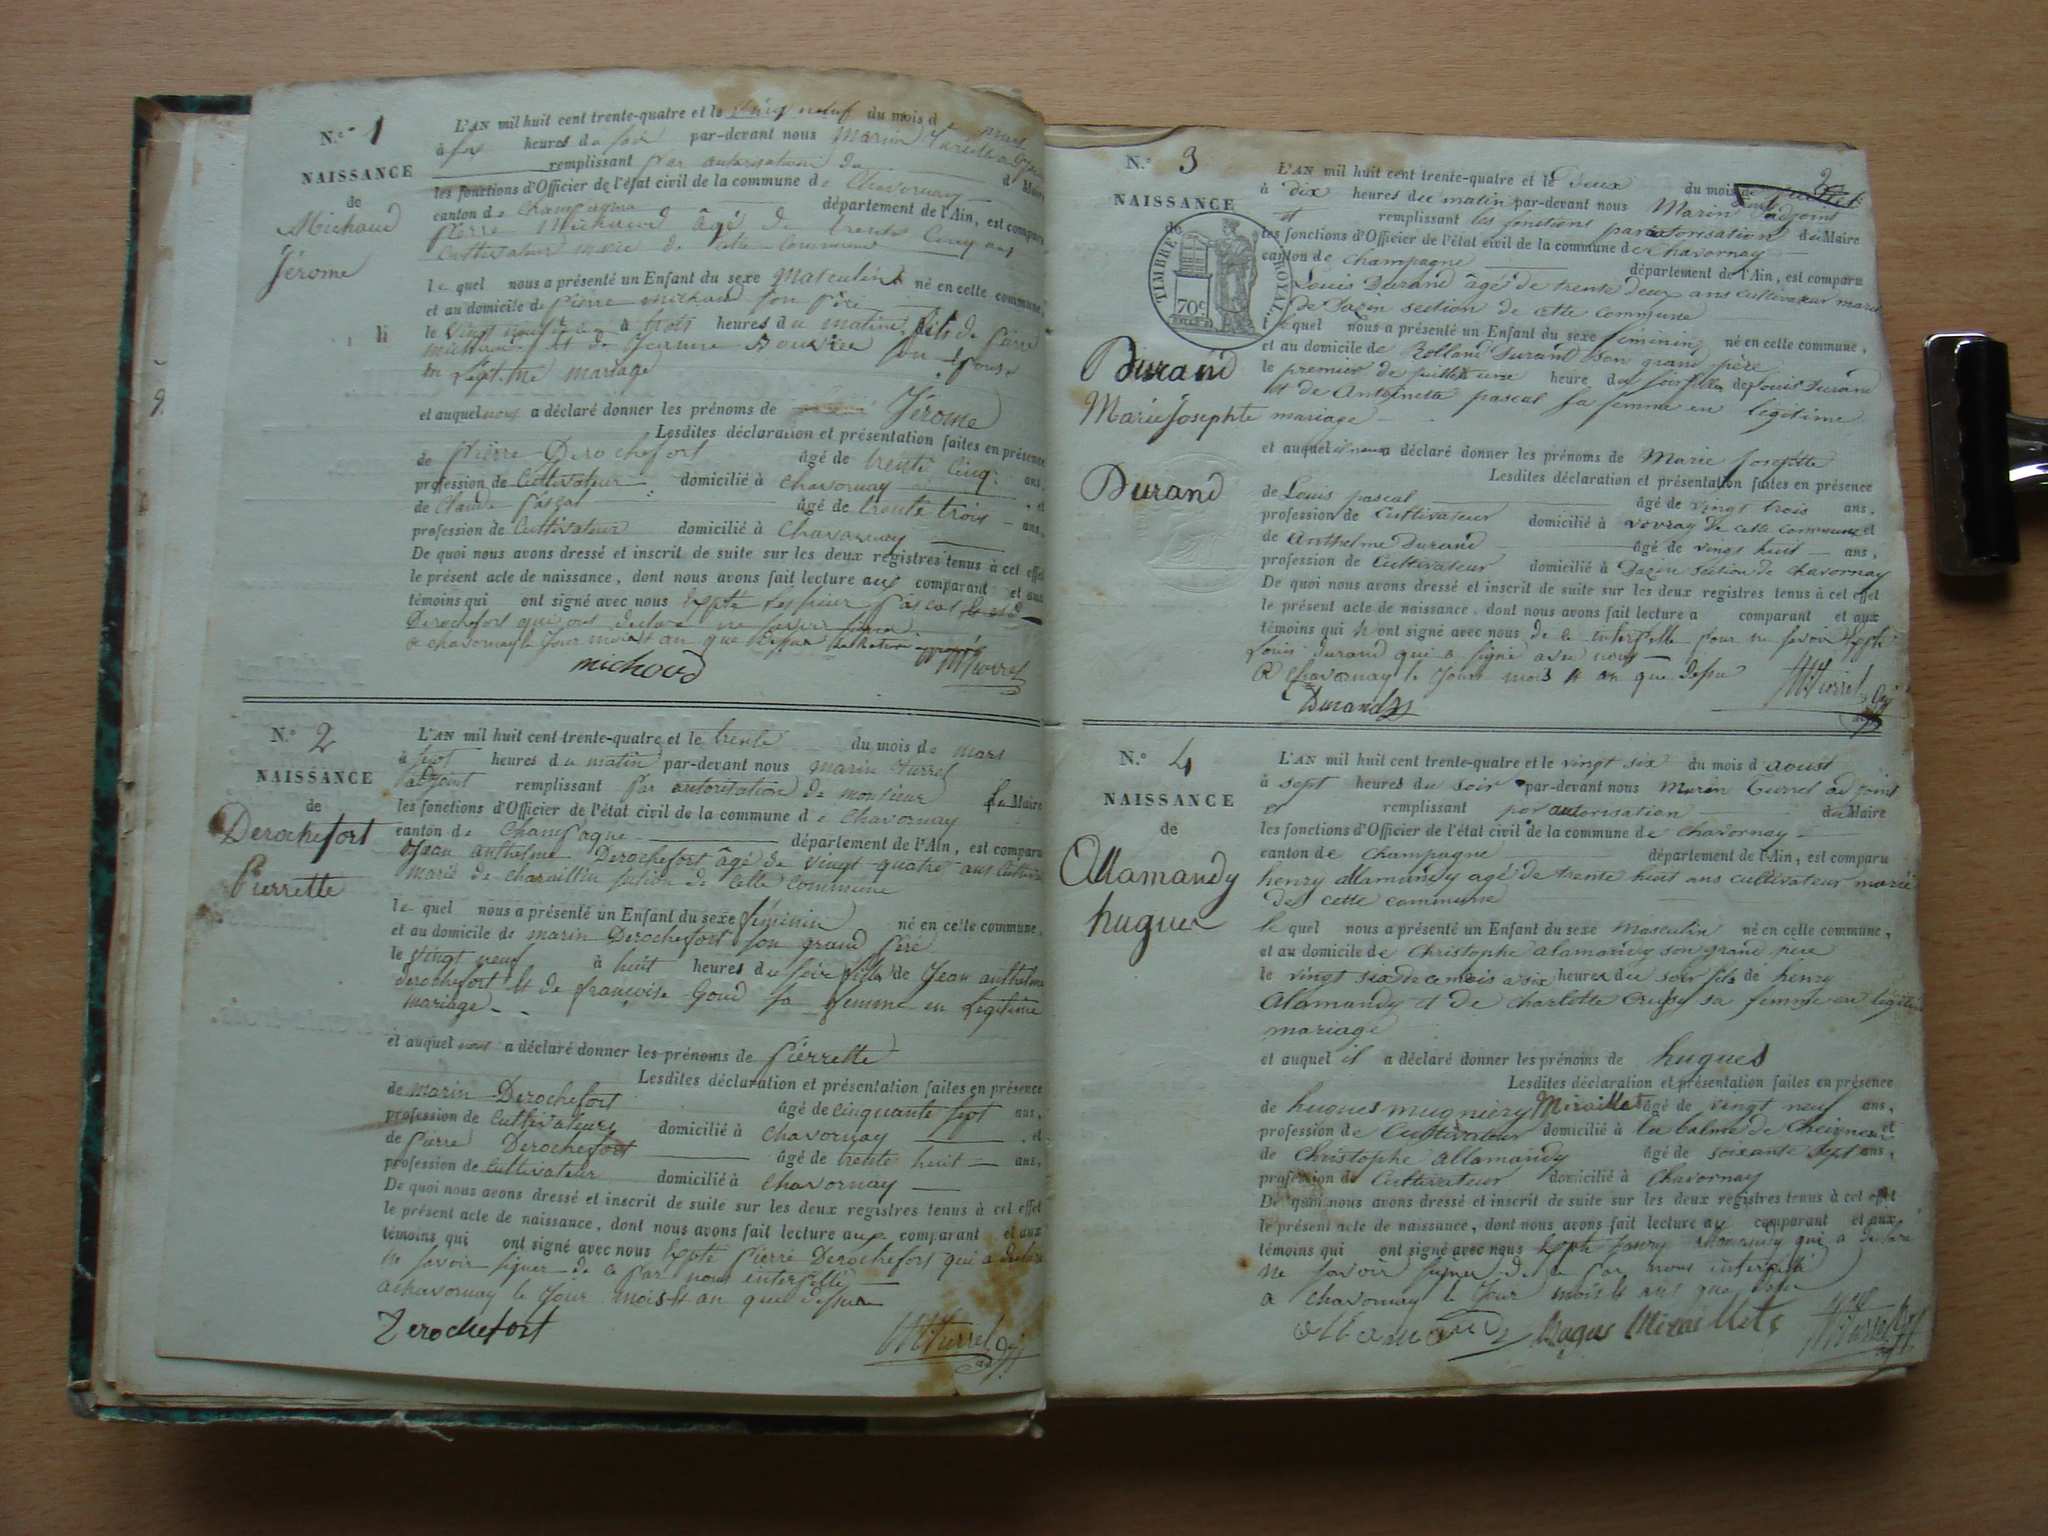 N.º 1
NAISSANCE
de
Michaud
Jérome
L'AN mil huit cent trente-quatre et le vingt neuf du mois d
à six heures du soir par-devant nous Marin Turrel
remplissant par autorisation du d Maire
les fonctions d'Officier de l'état civil de la commune de Chavornay
canton de Champagne département de l'Ain, est comparu
Pierre Michaud âgé de trente cinq ans
Cultivateur marié de cette commune
lequel nous a présenté un Enfant du sexe masculin né en cette commune,
et au domicile de pierre michaud son père
le vingt neuf à trois heures du matin fils de pierre
michaud et de son épouse
en légitime mariage
et auquel nous a déclaré donner les prénoms de Jérome
Lesdites déclaration et présentation faites en présence
de pierre Derochefort âgé de trente cinq ans,
profession de Cultivateur domicilié à Chavornay et
de Claude pascal âgé de trente trois ans,
profession de Cultivateur domicilié à Chavornay
De quoi nous avons dressé et inscrit de suite sur les deux registres tenus à cet effet
le présent acte de naissance, dont nous avons fait lecture aux comparant et aux
témoins qui ont signé avec nous pascal
Derochefort qui ont déclaré ne savoir signer
a chavornay le jour mois et an que dessus
michaud MTurrel
N.º 2
NAISSANCE
de
Derochefort
Pierrette
L'AN mil huit cent trente-quatre et le trente du mois de mars
à sept heures du matin par-devant nous marin turrel
adjoint remplissant par autorisation de monsieur le Maire
les fonctions d'Officier de l'état civil de la commune de Chavornay
canton de Champagne département de l'Ain, est comparu
Jean anthelme Derochefort âgé de vingt quatre ans
marié de charaillin section de cette commune
lequel nous a présenté un Enfant du sexe féminin né en cette commune,
et au domicile de marin Derochefort son grand père
le vingt neuf à huit heures du soir fille de Jean anthelme
derochefort et de françoise Goud sa femme en légitime
mariage
et auquel nous a déclaré donner les prénoms de pierrette
Lesdites déclaration et présentation faites en présence
de marin Derochefort âgé de cinquante sept ans,
profession de Cultivateur domicilié à Chavornay et
de pierre Derochefort âgé de trente huit ans,
profession de Cultivateur domicilié à Chavornay
De quoi nous avons dressé et inscrit de suite sur les deux registres tenus à cet effet
le présent acte de naissance, dont nous avons fait lecture aux comparant et aux
témoins qui ont signé avec nous pierre Derochefort qui a déclaré
ne savoir signer de ce par nous interpellé
a chavornay le jour mois et an que dessus
Derochefort MTurrel adj
2
N.º 3
NAISSANCE
de
TIMBRE ROYAL
70c
Durand
Marie Josephte
Durand
L'AN mil huit cent trente-quatre et le Deux du mois de
à dix heures du matin par-devant nous Marin adjoint
et remplissant les fonctions par autorisation du Maire
les fonctions d'Officier de l'état civil de la commune de Chavornay
canton de champagne département de l'Ain, est comparu
Louis Durand âgé de trente deux ans cultivateur marié
de Dazin section de cette commune
lequel nous a présenté un Enfant du sexe féminin né en cette commune,
et au domicile de Rolland Durand son grand père
le premier de juillet a une heure du soir fille de Louis Durand
et de Antoinette pascal sa femme en légitime
mariage
et auquel a déclaré donner les prénoms de Marie Josephte
Lesdites déclaration et présentation faites en présence
de Louis pascal âgé de vingt trois ans,
profession de cultivateur domicilié à vovray de cette commune et
de Anthelme Durand âgé de vingt huit ans,
profession de Cultivateur domicilié à Dazin section de chavornay
De quoi nous avons dressé et inscrit de suite sur les deux registres tenus à cet effet
le présent acte de naissance, dont nous avons fait lecture a comparant et aux
témoins qui n'ont signé avec nous de ce interpellé pour ne savoir
Louis durand qui a signé avec nous
a Chavornay le jour mois et an que dessus
Durand MTurrel adj
N.º 4
NAISSANCE
de
Allamandy
hugues
L'AN mil huit cent trente-quatre et le vingt six du mois d'aoust
à sept heures du soir par-devant nous Marin Turrel adjoint
et remplissant par autorisation du Maire
les fonctions d'Officier de l'état civil de la commune de chavornay
canton de champagne département de l'Ain, est comparu
henry allamandy agé de trente huit ans cultivateur marié
de cette commune
lequel nous a présenté un Enfant du sexe masculin né en cette commune,
et au domicile de christophe alamandy son grand père
le vingt six de ce mois a six heures du soir fils de henry
alamandy et de charlotte sa femme en légitime
mariage
et auquel il a déclaré donner les prénoms de hugues
Lesdites déclaration et présentation faites en présence
de hugues mugniery Miraillet âgé de vingt neuf ans,
profession de Cultivateur domicilié à la balme de et
de christophe allamandy âgé de soixante sept ans,
profession de Cultivateur domicilié à Chavornay
De quoi nous avons dressé et inscrit de suite sur les deux registres tenus à cet effet
le présent acte de naissance, dont nous avons fait lecture au comparant et aux
témoins qui ont signé avec nous henry allamandy qui a déclaré
ne savoir signer de ce par nous interpellé
a chavornay le jour mois et ans que dessus
allamandy hugues Miraillet MTurrel adj